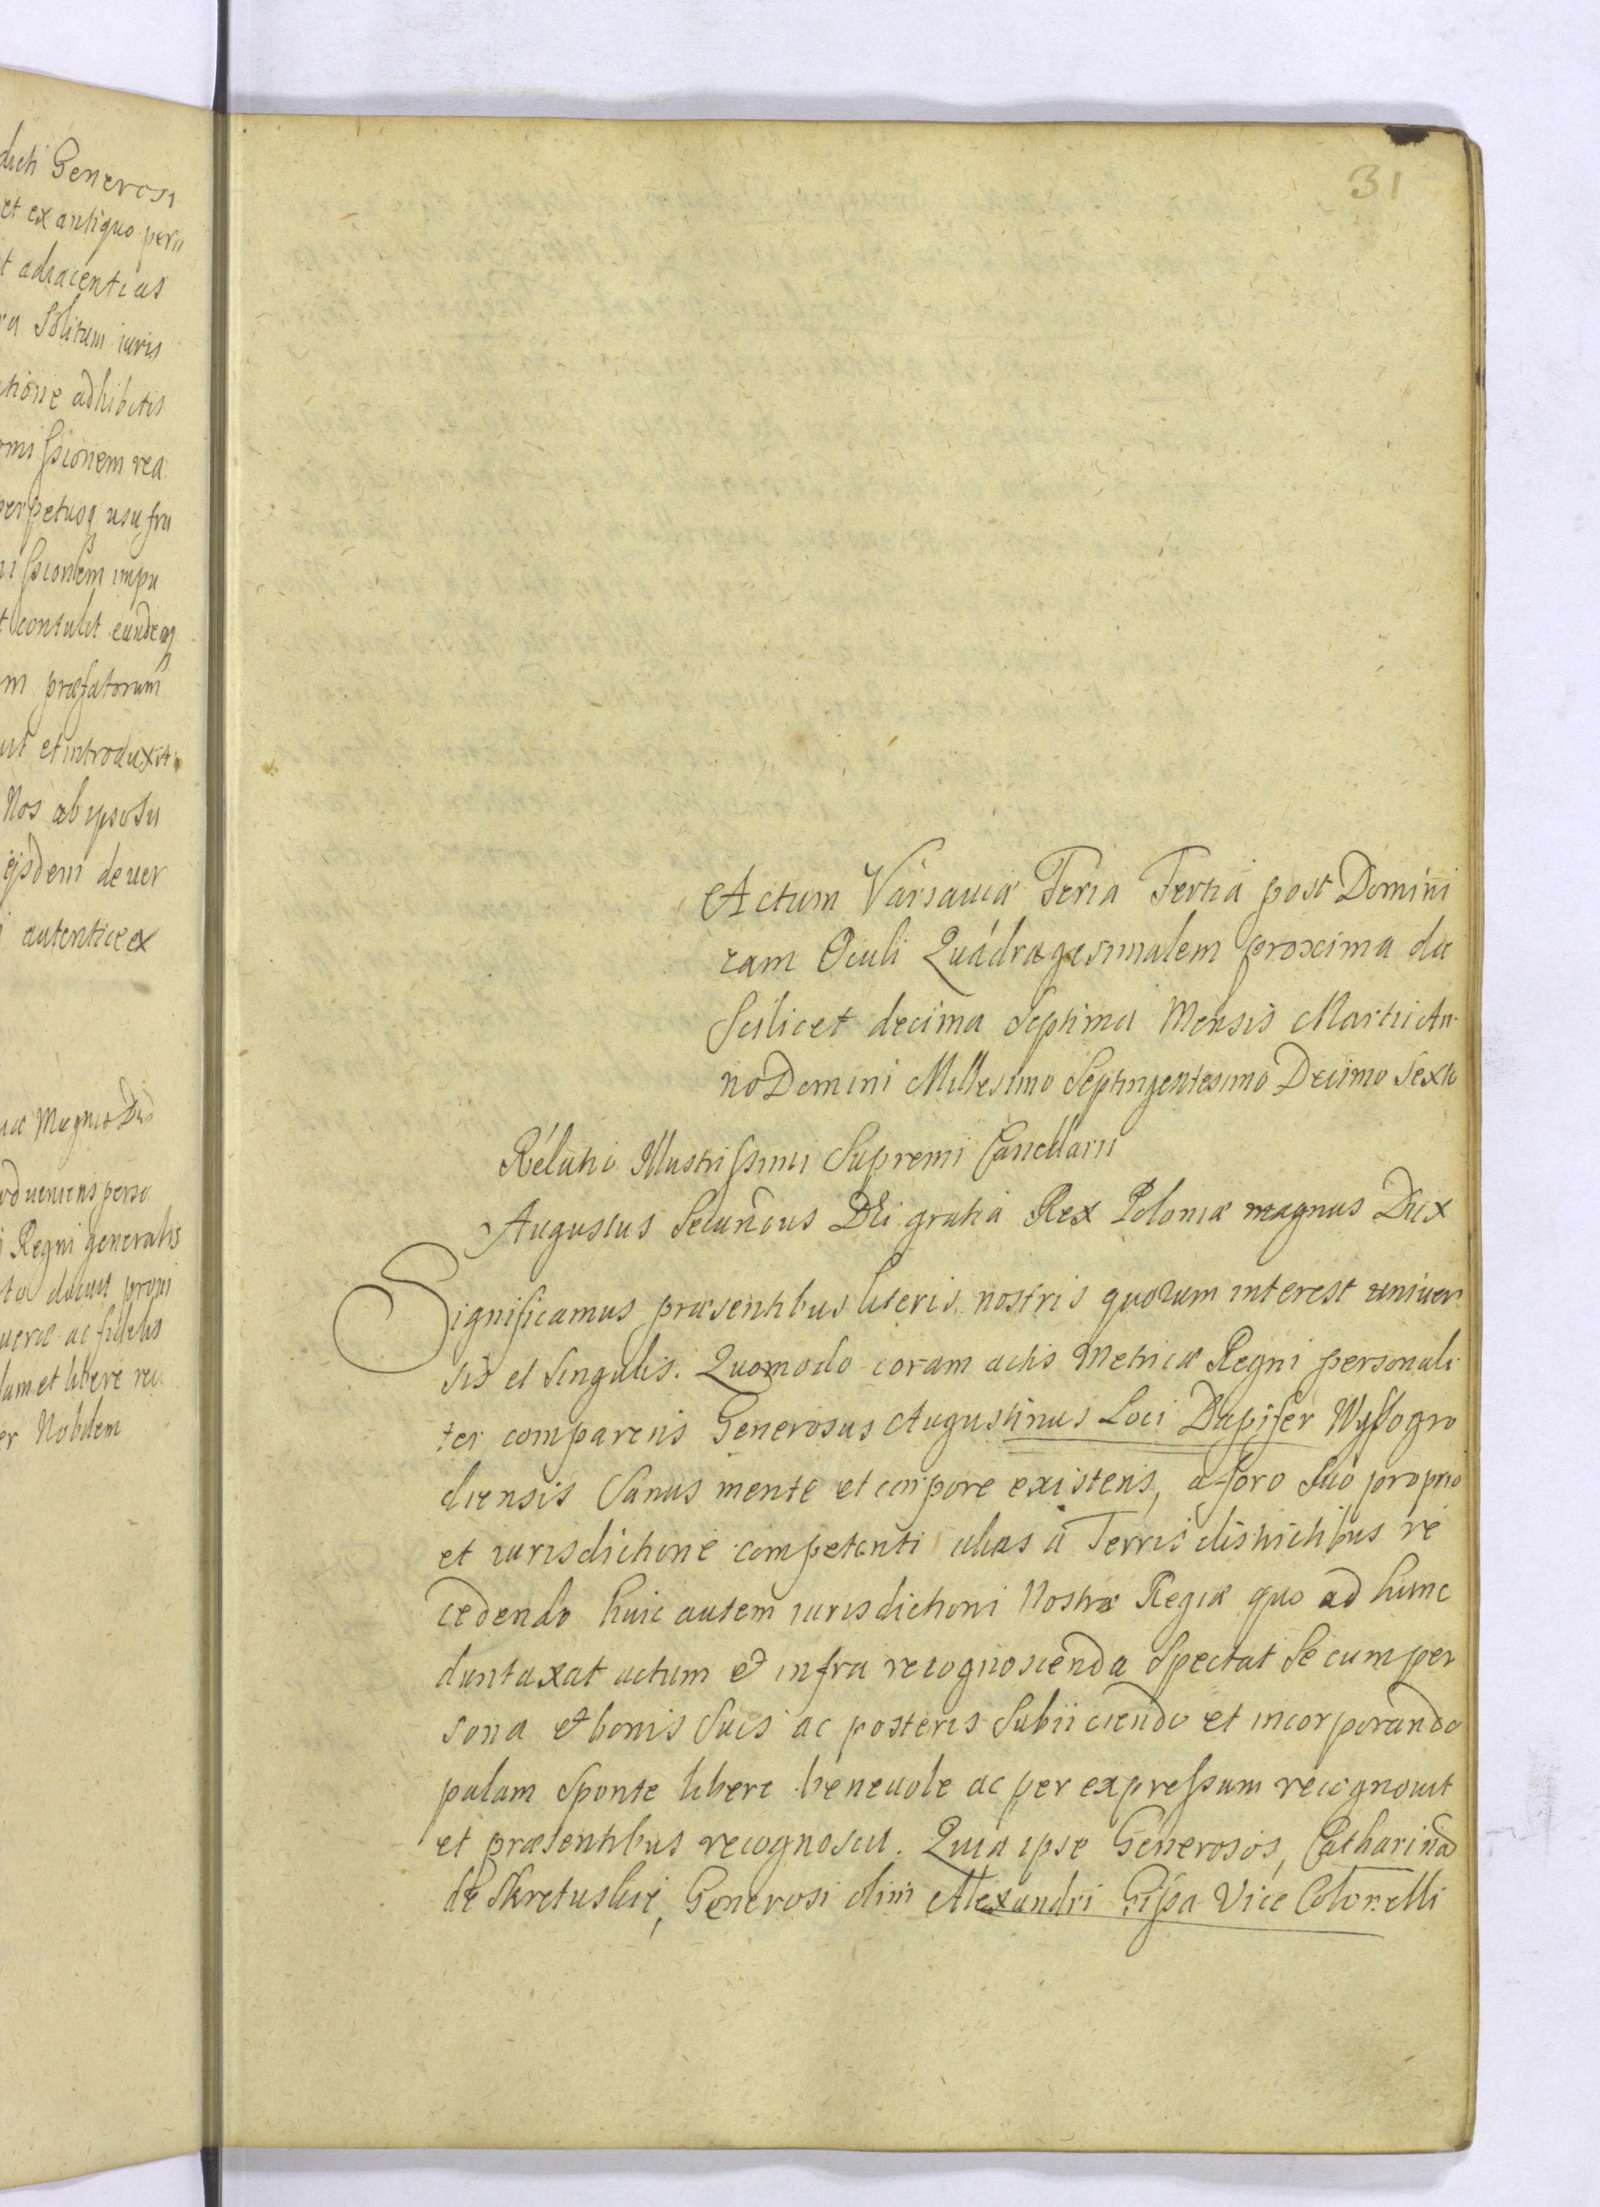 dicti Generosi
et ex antiquo
adiacentias
Solitum iuris
adhibitis
perpetuoq usufru
contulit eundem
præfatorum
et introduxit
Nos ab ipso Su
autentice ex
Regni generalis
am et libere
Nobilem
31
Actum Varsaviæ Feria Tertia post Domini
cam Oculi Quádragesimalem proxima die
Scilicet decima Septima Mensis Martii An
no Domini Millesimo Septingentesimo Decimo Sexto
Relatio Illustrissimi Supremi Cancellarii
Augustus Secundus Dei gratia Rex Poloniæ magnus Dux
Significamus præsentibus literis nostris quorum interest univer
sis et Singulis. Quomodo coram actis Metricæ Regni personali
ter comparens Generosus Augustinus Loci Dapifer Wyssogro
diensis Sanus mente et corpore existens, a foro Suo proprio
et iurisdictione competenti alias a Terris districtibus re
cedendo huic autem iurisdictioni Nostræ Regiæ quo ad hunc
duntaxat actum et infra recognoscenda Spectat Se cum per
sona et bonis Suis ac posteris Subiiciendo et incorporando
palam Sponte libere benevole ac per expressum recognovit
et præsentibus recognoscit. Quia ipse Generosos, Catharina
de Skretuskie, Generosi olim Alexandri Gissa Vice Colonelli